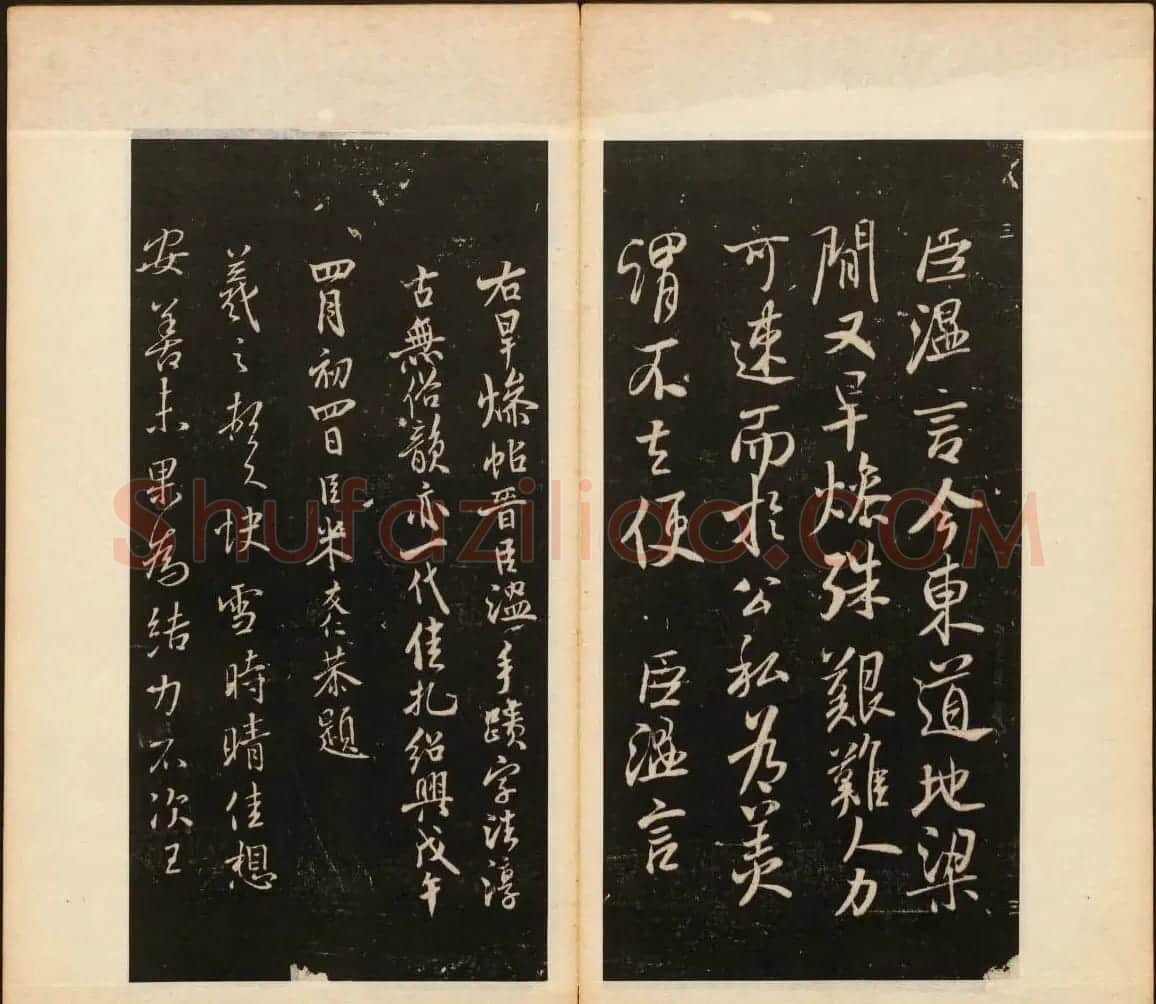 臣溫言今東道地梁
閒又旱燥殊艱難人力
可速而於公私為美
謂不去便 臣溫言
三
三
右旱燥帖晉臣溫手蹟字法淳
古無俗韻亦一代佳札紹興戊午
四月初四日臣米友仁恭題
羲之頓首快雪時晴佳想
安善未果為結力不次王
Shufaziliao.COM